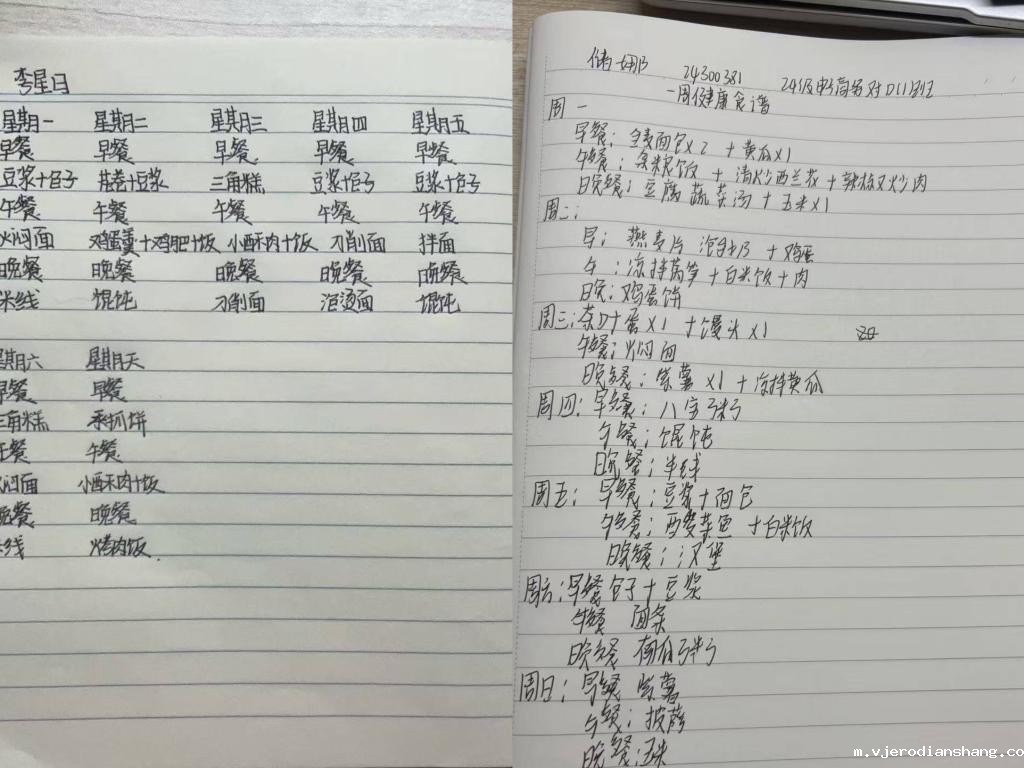 李星日
星期一 星期二 星期三 星期四 星期五
早餐 早餐 早餐 早餐 早餐
豆浆+包子 +豆浆 三角糕 豆浆+包子 豆浆+包子
午餐 午餐 午餐 午餐 午餐
焖面 鸡蛋羹+鸡肥+饭 小酥肉+饭 刀削面 拌面
晚餐 晚餐 晚餐 晚餐 晚餐
米线 馄饨 刀削面 泡烫面 馄饨
星期六 星期天
早餐 早餐
三角糕 手抓饼
午餐 午餐
焖面 小酥肉+饭
晚餐 晚餐
米线 烤肉饭
储娜 24300381 24级电商
一周健康食谱
周一
早餐: 全麦面包x2 + 黄瓜x1
午餐: 杂粮饭 + 清炒西兰花 + 辣椒炒肉
晚餐: 豆腐蔬菜汤 + 玉米x1
周二:
早: 燕麦片 泡牛奶 + 鸡蛋
午: 凉拌莴笋 + 白米饭 + 肉
晚: 鸡蛋饼
周三: 茶叶蛋x1 + 馒头x1
午餐: 焖面
晚餐: 紫薯x1 + 凉拌黄瓜
周四: 早餐: 八宝粥
午餐: 馄饨
晚餐: 米线
周五: 早餐: 豆浆+面包
午餐: 鱼 + 白米饭
晚餐: 汉堡
周六: 早餐 包子+豆浆
午餐 面条
晚餐 南瓜粥
周日: 早餐 紫薯
午餐: 披萨
晚餐: 玉米
m.vjerodianshang.co